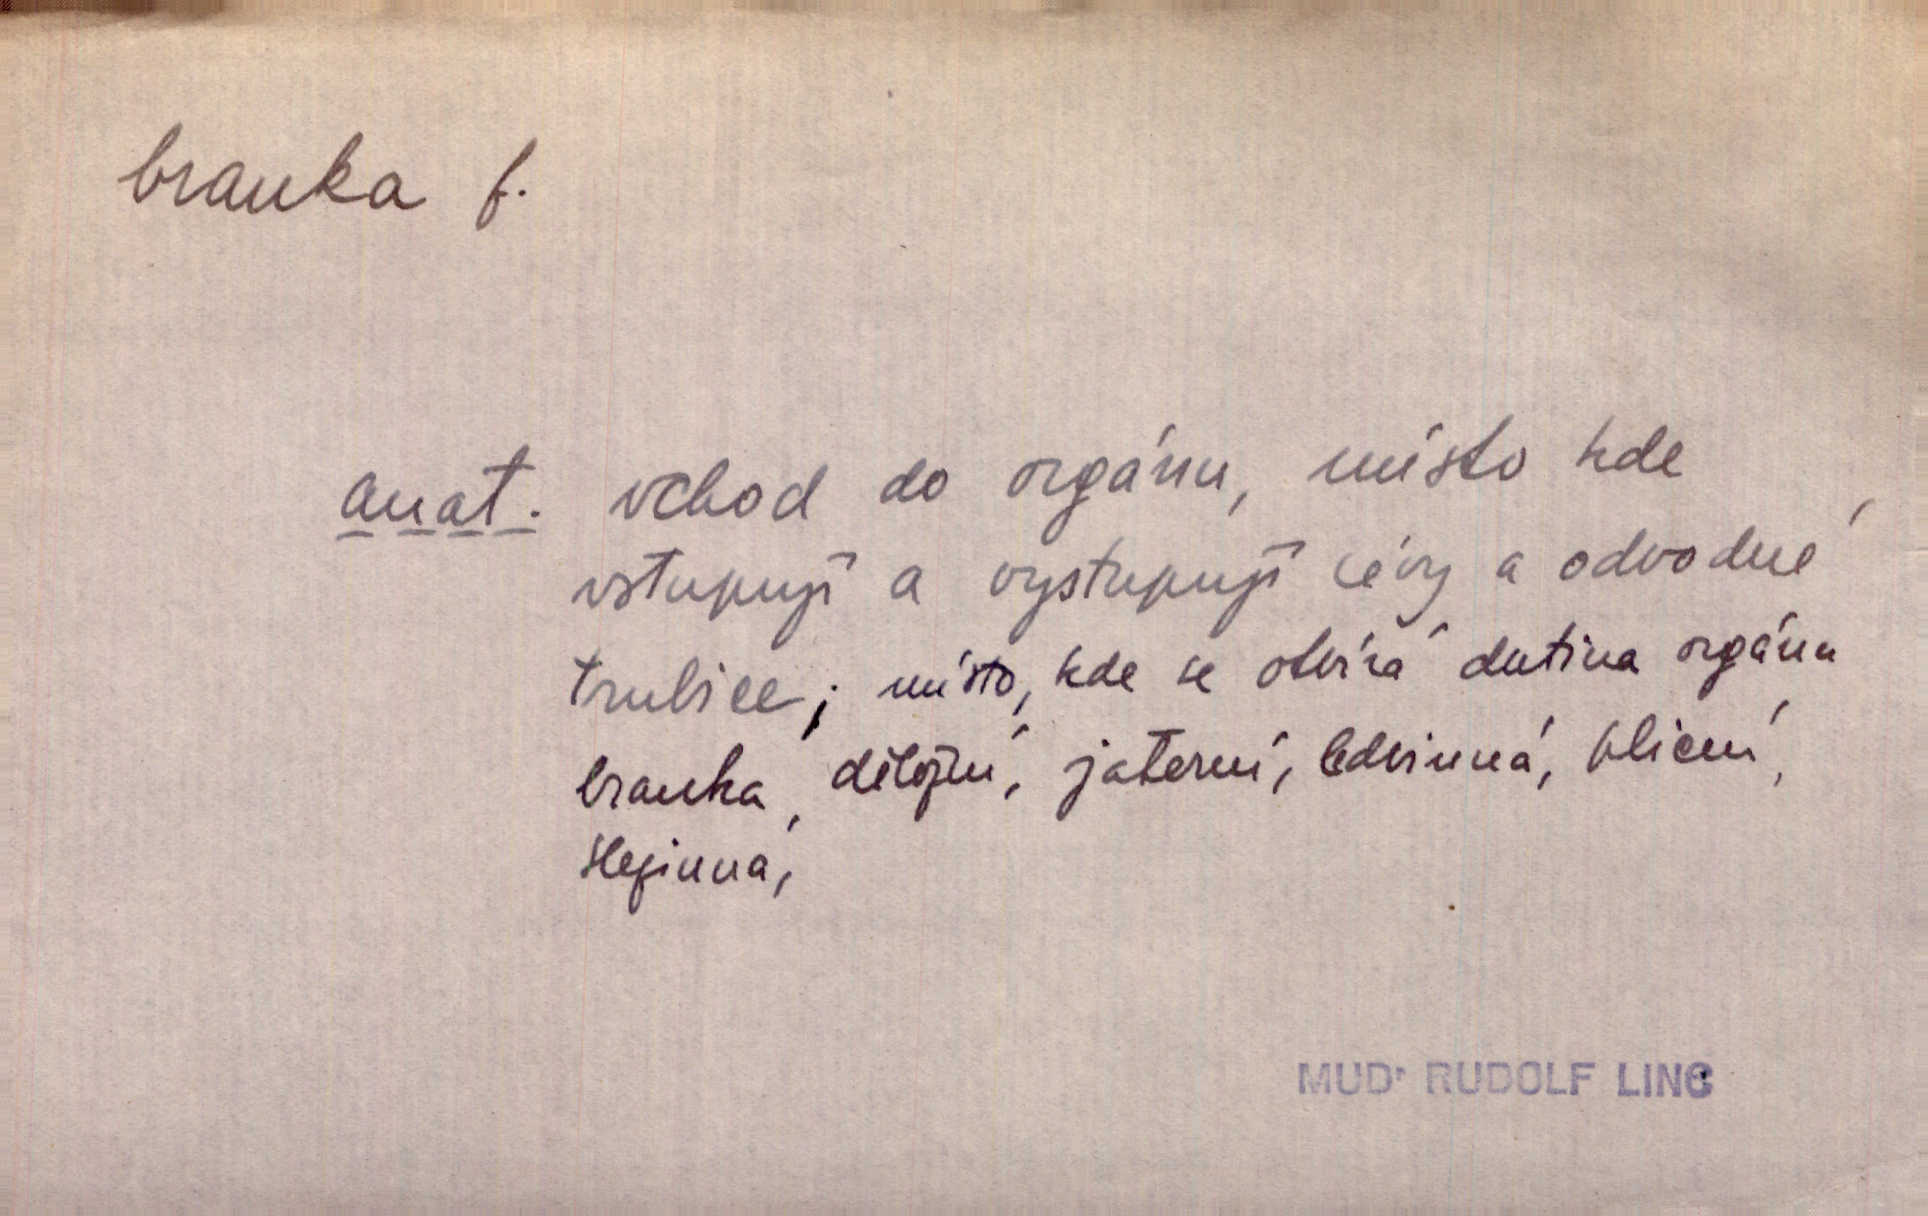 branka f.
anat. vchod do orgánu, místo kde
vstupují a vystupují cévy a odvodné
trubice; místo, kde se otvírá dutina orgánu
branka, děložní, jaterní, ledvinná, plicní,
slezinná,
MUDr RUDOLF LINC